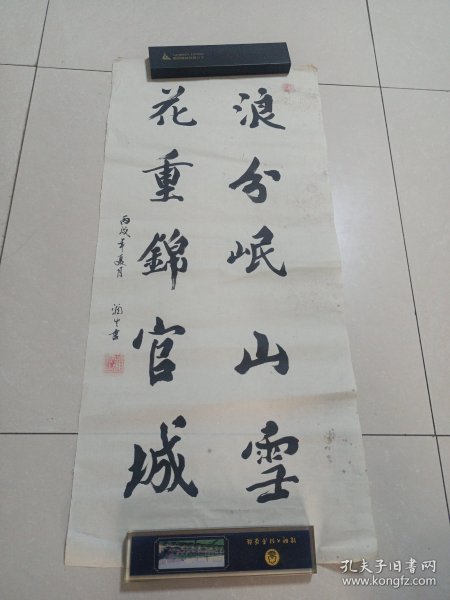 浪分岷山雪
花重錦官城
丙戌年夏月
书
孔夫子旧书网
www.kongfz.com